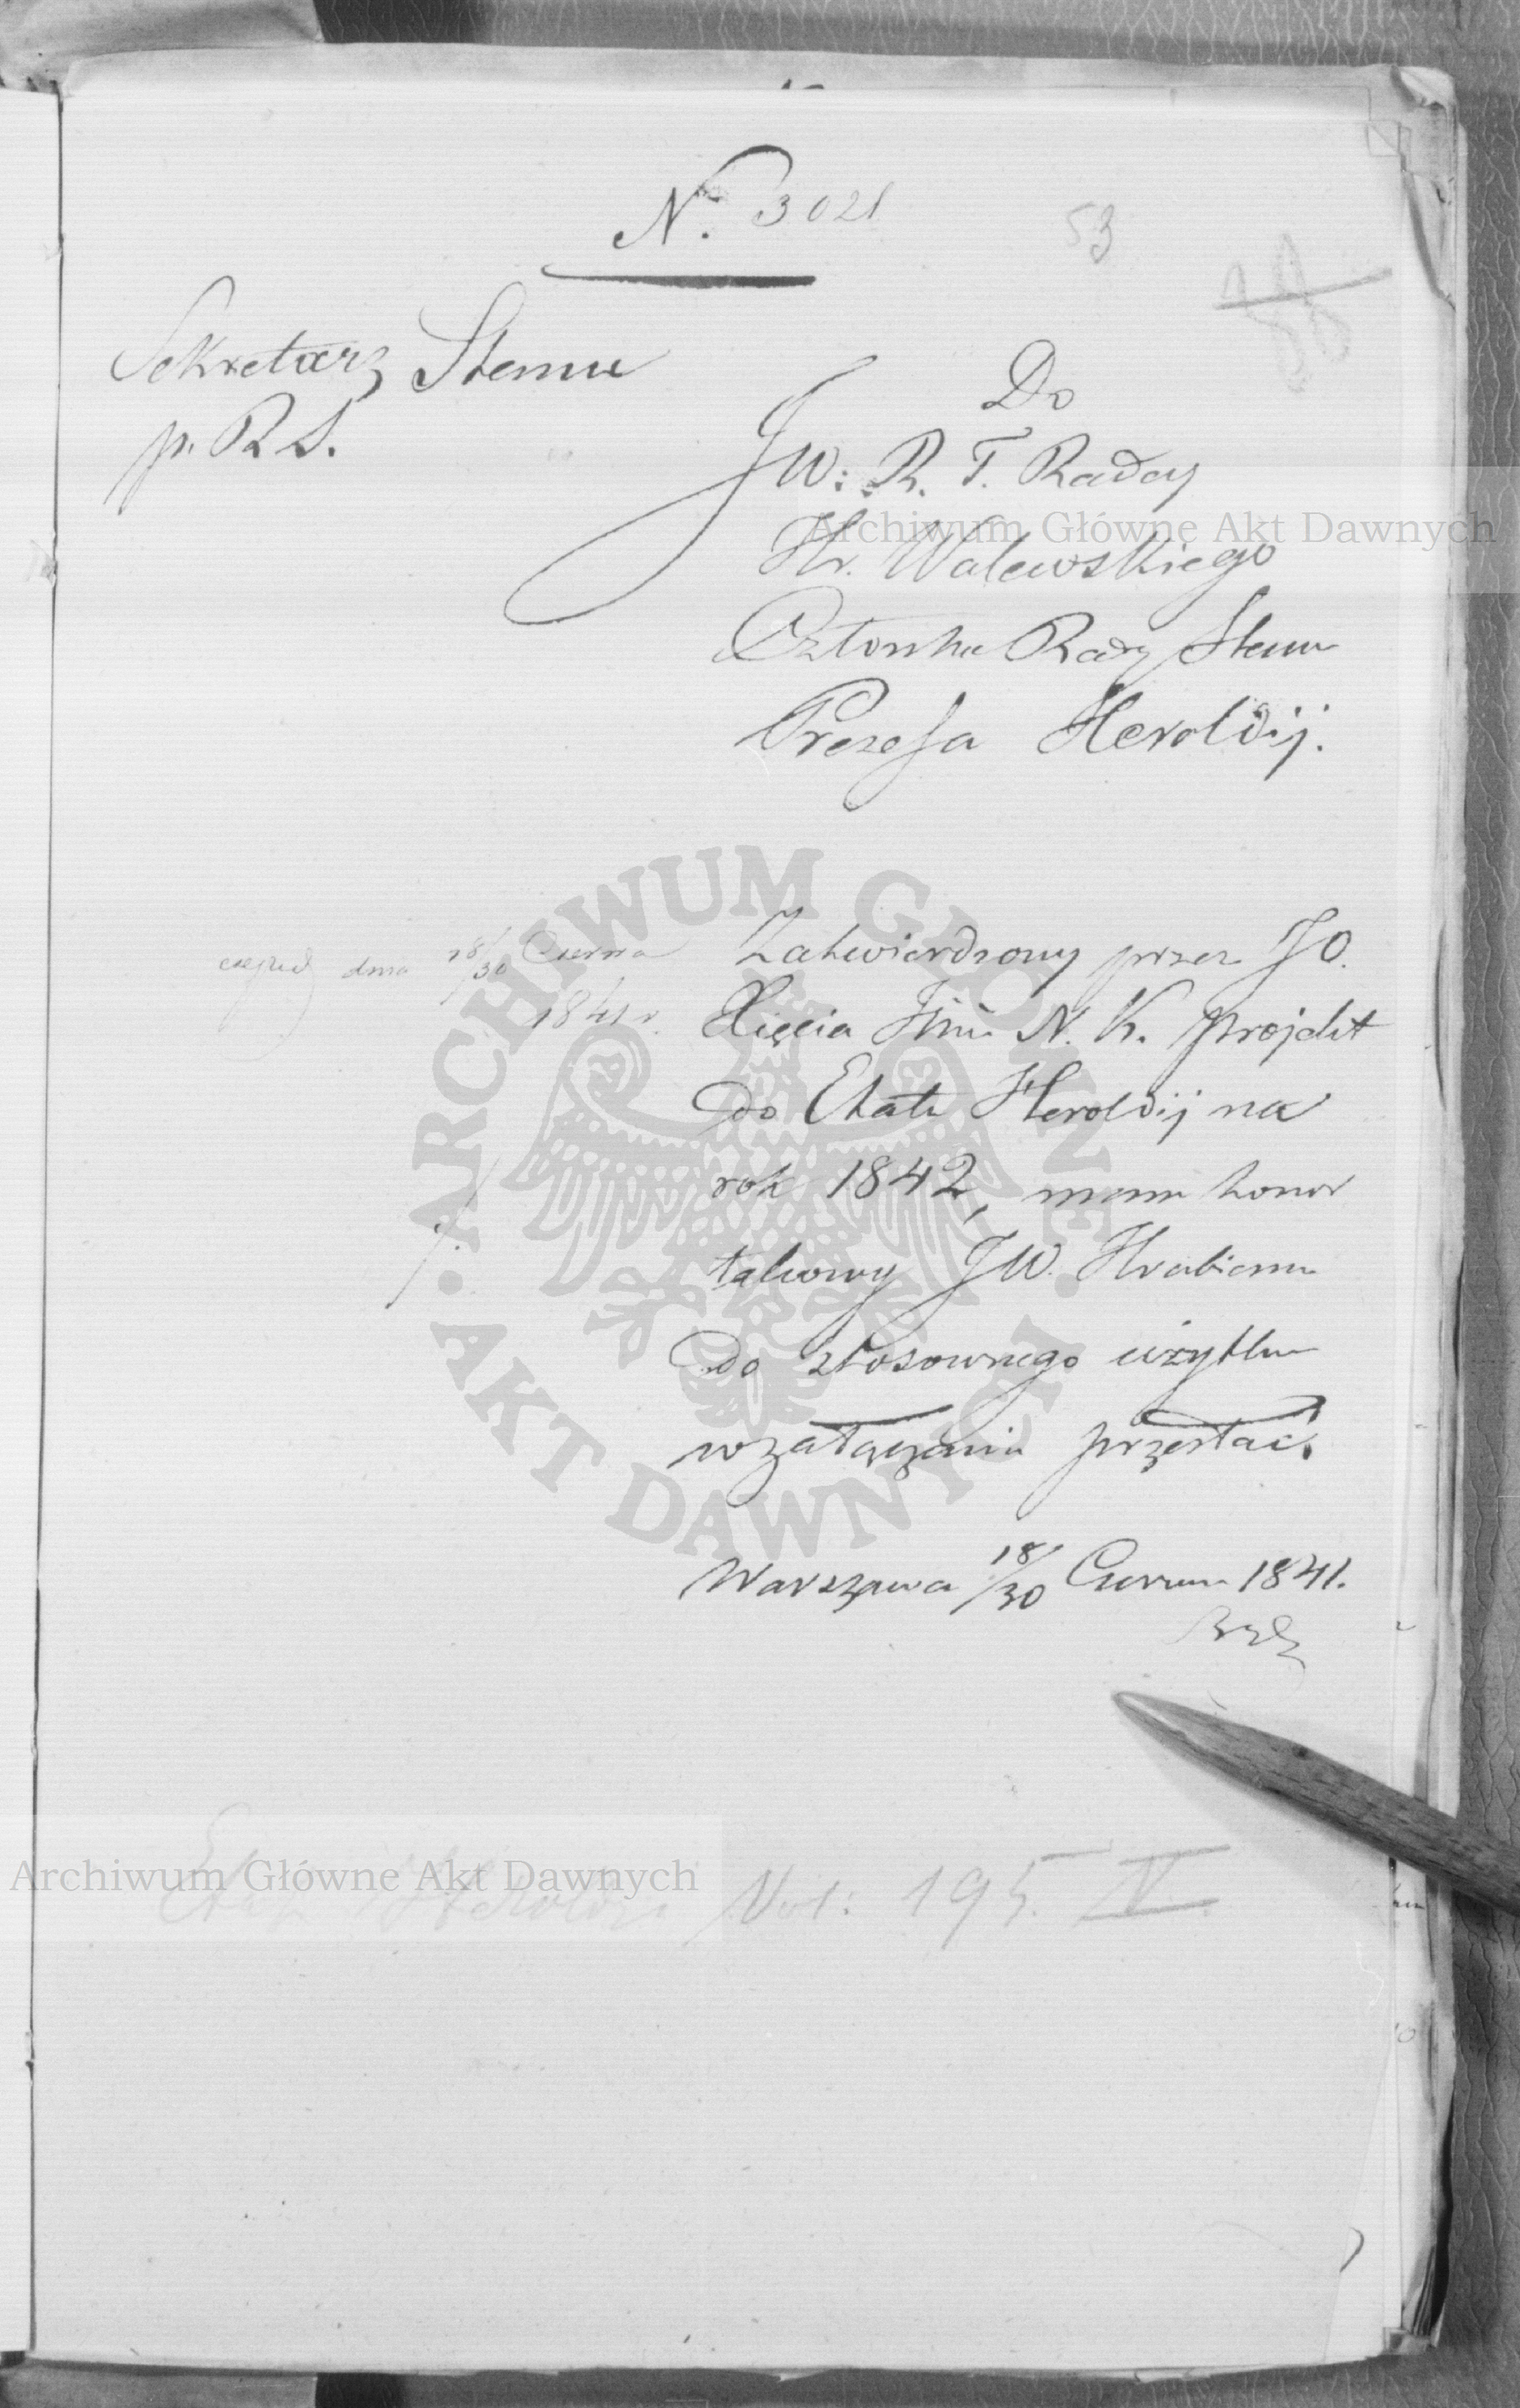 N. 3021
53
Sekretarz Stanu
p. R S.
Do
JW: R. T. Radcy
Hr. Walewskiego
Członka Rady Stanu
Prezesa Heroldij.
exped dnia 18/30 Czerwca
1841 r.
Zatwierdzony przez JO.
Xięcia Jmci N. K. projekt
do Etatu Heroldij na
rok 1842, mam honor
takowy JW. Hrabiemu
do stosownego użytku
w załączeniu przesłać.
Warszawa 18/30 Czerwca 1841.
Etat Heroldyi Vol: 195. IV.
Archiwum Główne Akt Dawnych
ARCHIWUM GŁÓWNE AKT DAWNYCH
Archiwum Główne Akt Dawnych